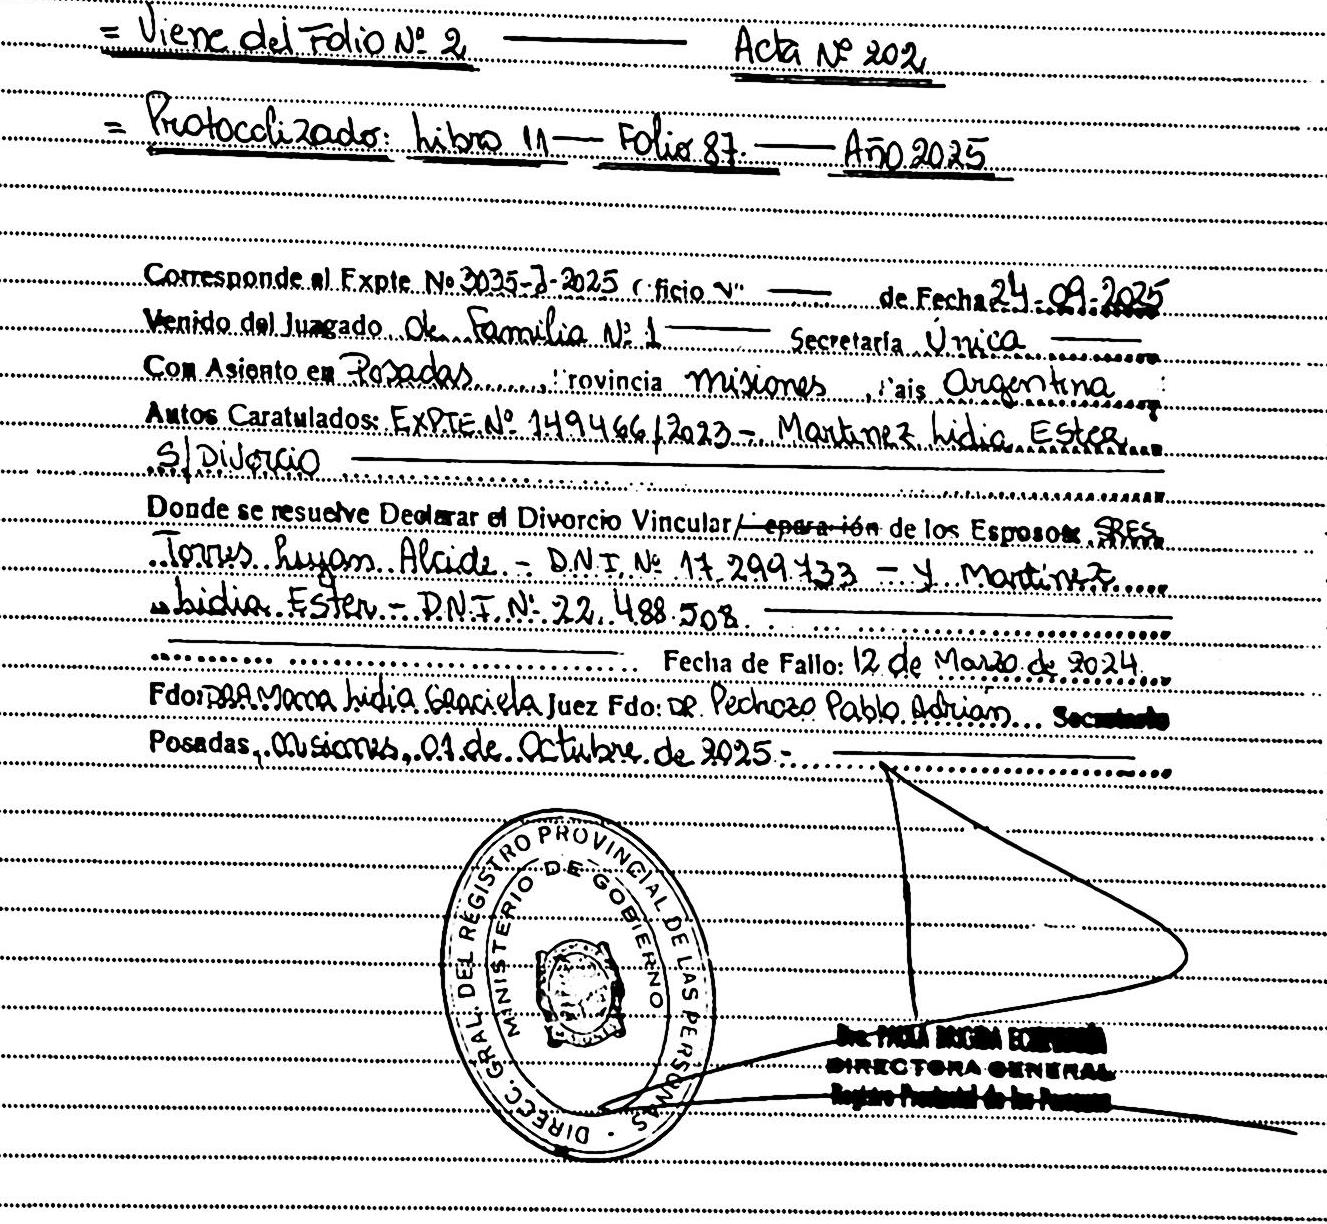 = Viene del Folio Nº 2 ——— Acta Nº 202
= Protocolizado: Libro 11 — Folio 87. — Año 2025
Corresponde al Expte Nº 3035-J-2025 ficio Nº — de Fecha 24-09-2025
Venido del Juzgado de Familia Nº 1 — Secretaría Única —
Con Asiento en Posadas, Provincia Misiones, País Argentina
Autos Caratulados: EXPTE Nº 149466/2023 - Martinez Lidia Ester
S/Divorcio
Donde se resuelve Declarar el Divorcio Vincular/ eparación de los Esposos SRES
Torres Lujan Alcide - D.N.I. Nº 17.299.733 - y Martinez
Lidia Ester - D.N.I. Nº 22.488.508.
Fecha de Fallo: 12 de Marzo de 2024.
Fdo: DRA. Lidia Graciela Juez Fdo: DR. Pedrozo Pablo Adrián Secretario
Posadas, Misiones, 01 de Octubre de 2025.-
DIRECC. GRAL. DEL REGISTRO PROVINCIAL DE LAS PERSONAS
MINISTERIO DE GOBIERNO
Dra. PAOLA BRIGIDA
DIRECTORA GENERAL
Registro Provincial de las Personas